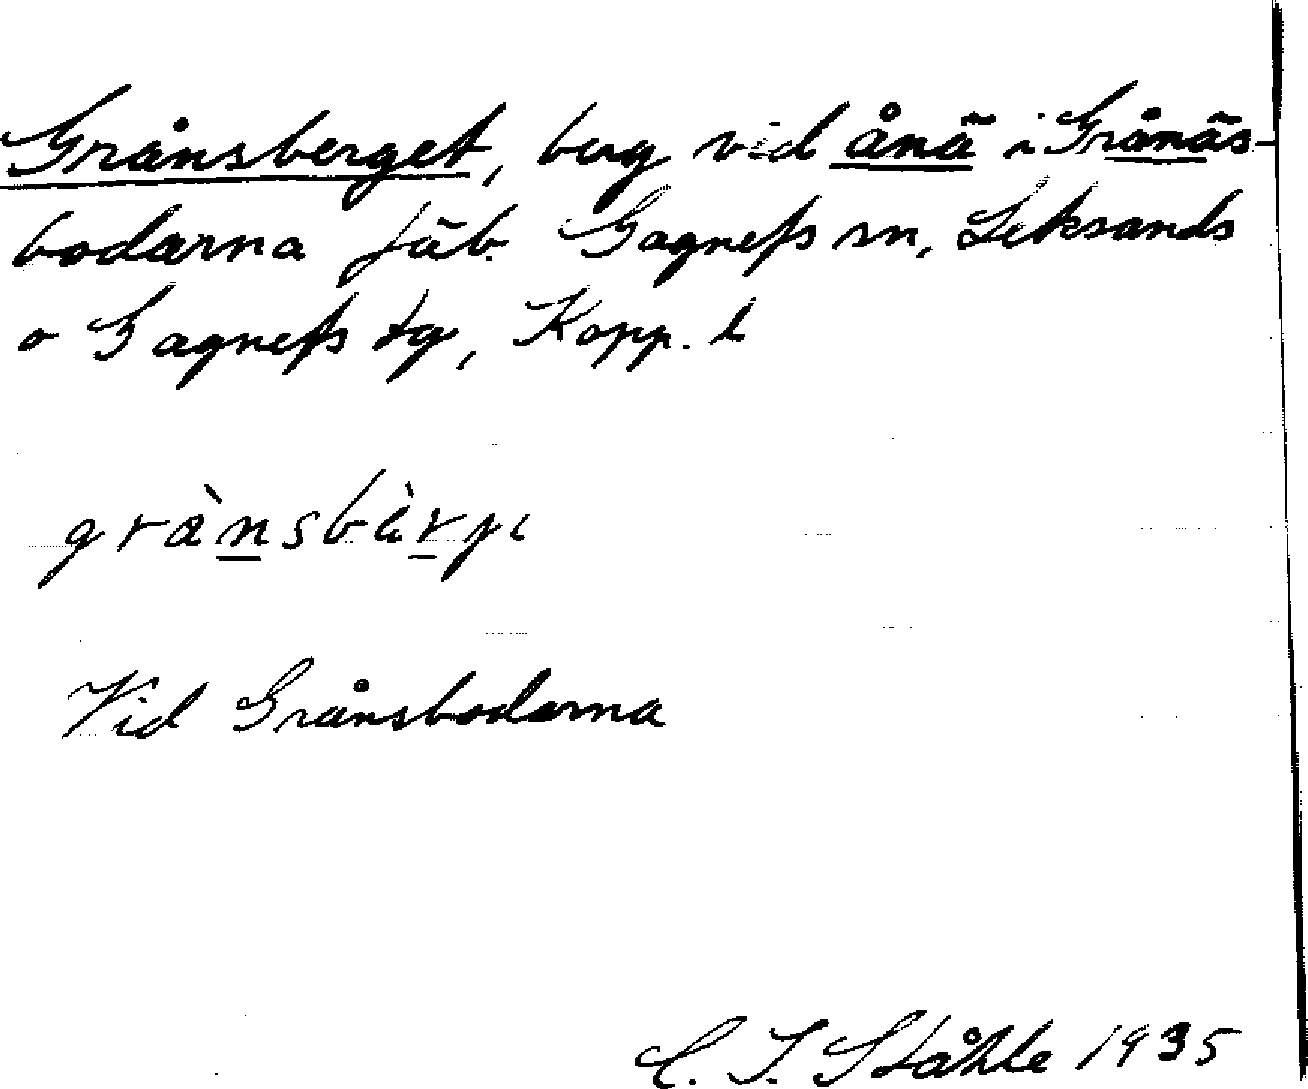 Grånsberget, berg vid ånä i Grånäs-
bodarna fäb. Gagnefs sn, Leksands
o Gagnefs tg, Kopp. l
Vid Grånsbodarna
C. I. Ståhle 1935